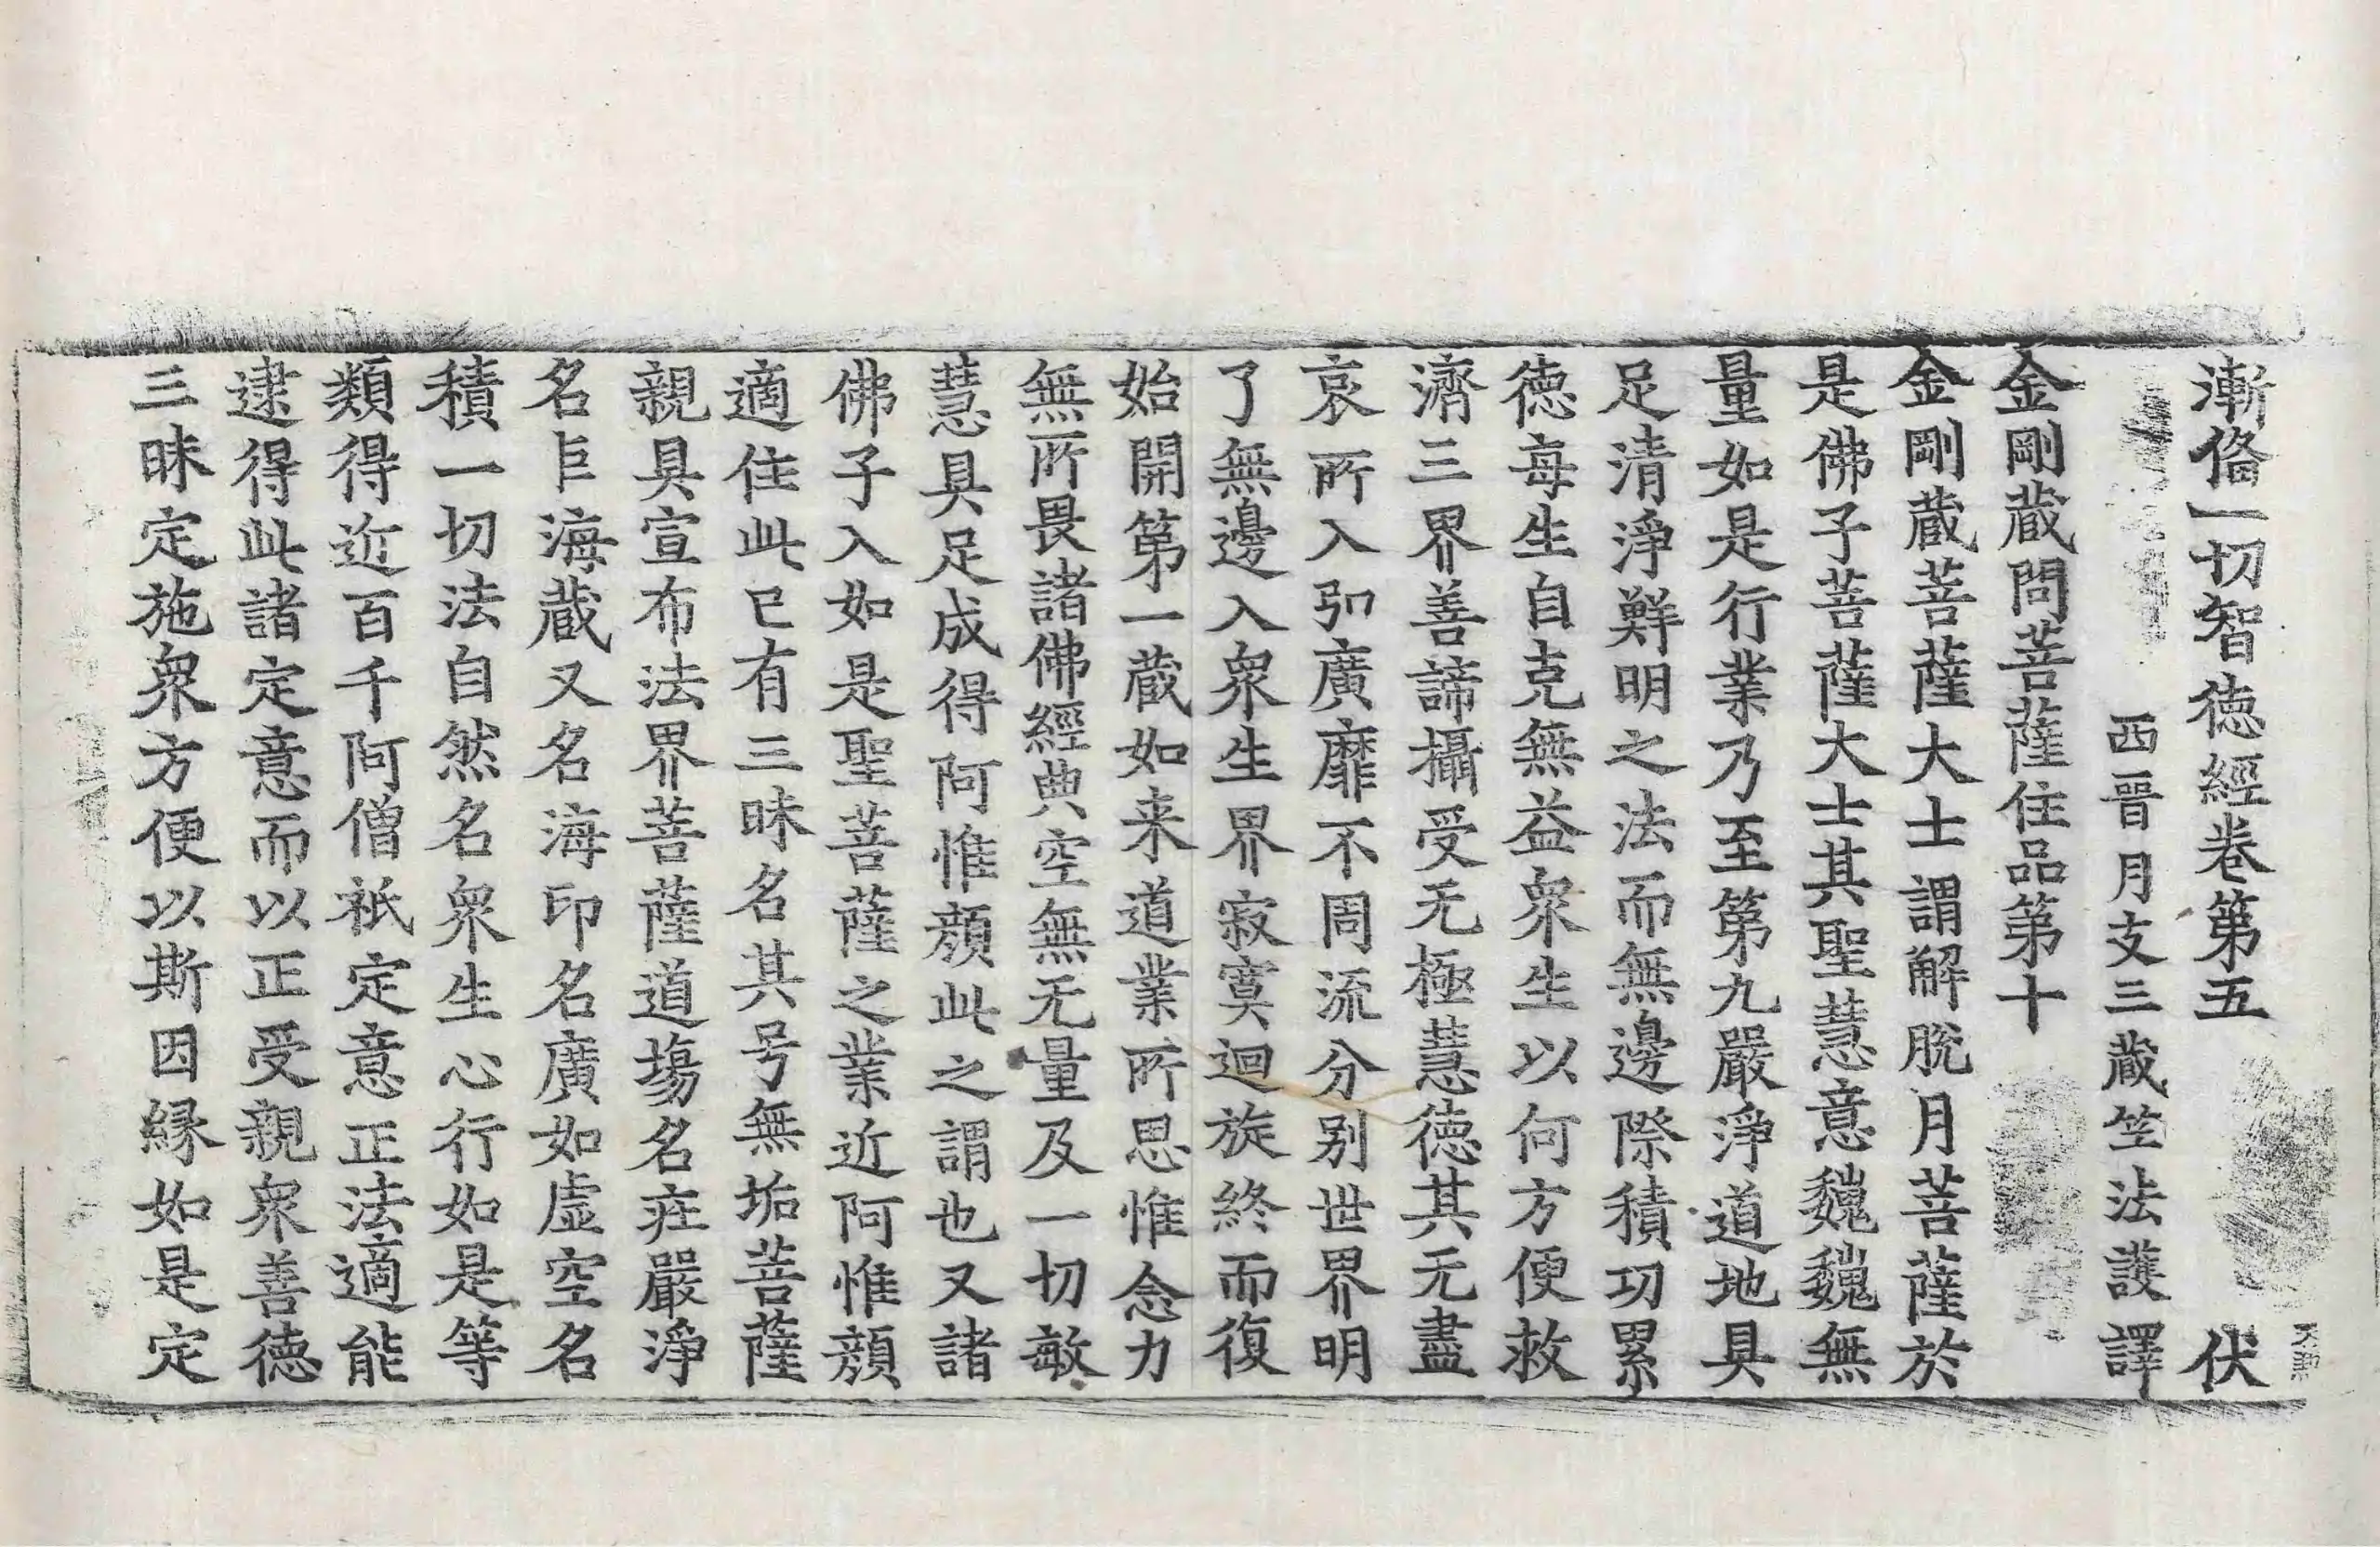 漸俻一切智徳經卷第五 伏
西晉月支三蔵竺法護譯
金剛蔵問菩薩住品第十
金剛蔵菩薩大士謂解脫月菩薩於
是佛子菩薩大士其聖慧意巍巍無
量如是行業乃至第九嚴淨道地具
足清淨鮮明之法而無邊際積功累
徳每生自克無益衆生以何方便救
濟三界善諦攝受无極慧徳其无盡
哀所入弘廣靡不周流分别世界明
了無邊入衆生界寂寞迴旋終而復
始開第一蔵如来道業所思惟念力
無所畏諸佛經典空無无量及一切敏
慧具足成得阿惟顔此之謂也又諸
佛子入如是聖菩薩之業近阿惟顔
適住此已有三昧名其号無垢菩薩
親具宣布法界菩薩道塲名疘嚴淨
名巨海蔵又名海印名廣如虛空名
積一切法自然名衆生心行如是等
類得近百千阿僧祇定意正法適能
逮得此諸定意而以正受親衆善徳
三昧定施衆方便以斯因緣如是定